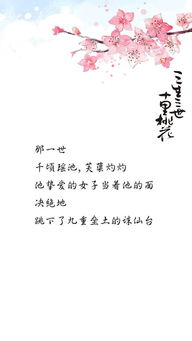 三生三世
十里桃花
那一世
千顷瑶池，芙蕖灼灼
他挚爱的女子当着他的面
决绝地
跳下了九重垒土的诛仙台